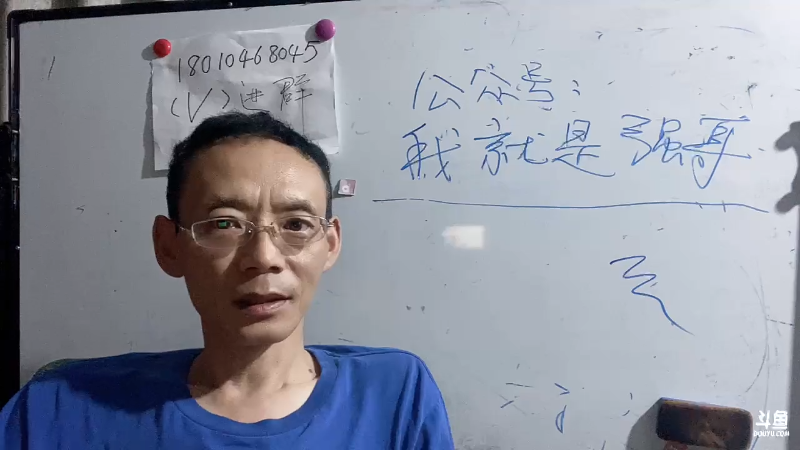 18010468045
(V)进群
公众号:
我就是强哥
斗鱼
DOUYU.COM